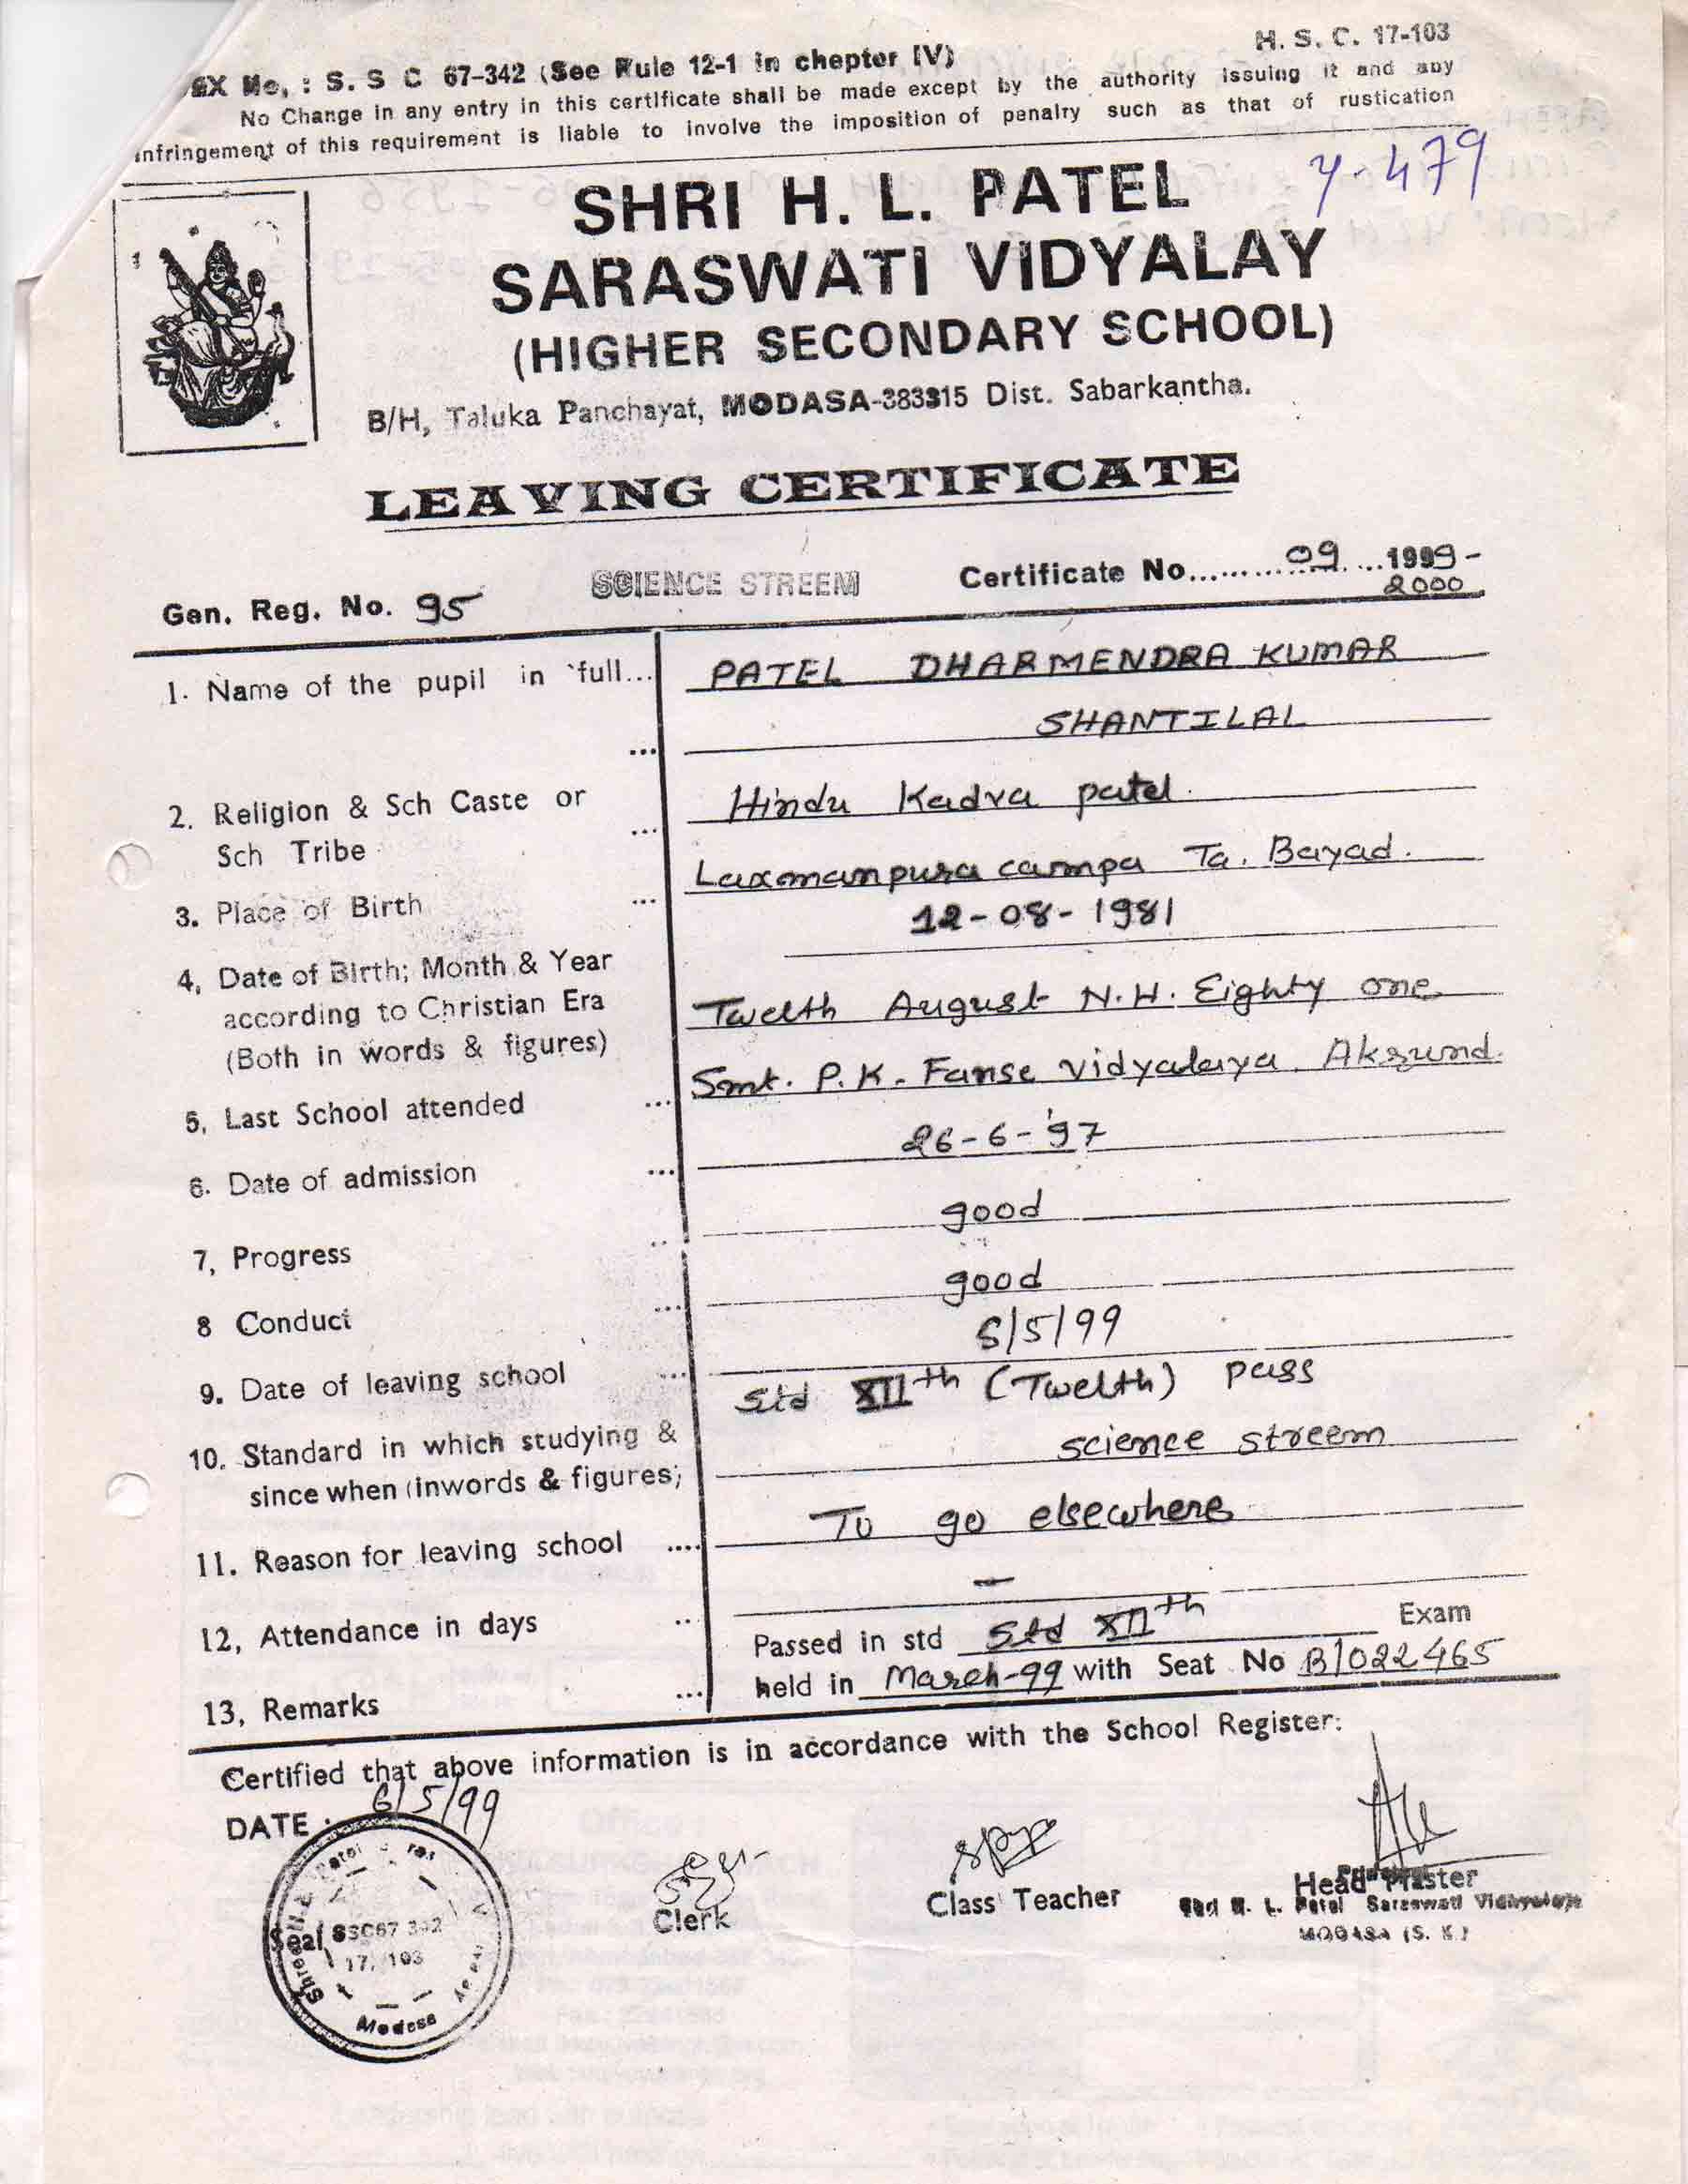 H. S. C. 17-103
EX No, : S. S C 67-342 (See Rule 12-1 in chepter IV)
No Change in any entry in this certificate shall be made except by the authority issuing it and any
infringement of this requirement is liable to involve the imposition of penalry such as that of rustication
SHRI H. L. PATEL
SARASWATI VIDYALAY
(HIGHER SECONDARY SCHOOL)
B/H, Taluka Panchayat, MODASA-383315 Dist. Sabarkantha.
LEAVING CERTIFICATE
SCIENCE STREEM
Certificate No. 09 1999-
2000
Gen. Reg. No. 95
1. Name of the pupil in full... PATEL DHARMENDRA KUMAR
SHANTILAL
2. Religion & Sch Caste or Hindu Kadva patel.
Sch Tribe
3. Place of Birth ... Laxmanpura campa Ta. Bayad.
12-08-1981
4, Date of Birth; Month & Year
according to Christian Era Twelth August N.H. Eighty one
(Both in words & figures)
5, Last School attended ... Smt. P.K. Fanse vidyalaya. Akrund.
6. Date of admission ... 26-6-'97
7, Progress good
8 Conduct ... good
9. Date of leaving school ... 5/5/99
10. Standard in which studying & Std XIIth (Twelth) pass
since when (inwords & figures; science streem
11. Reason for leaving school .... To go elsewhere
12, Attendance in days ... —
13, Remarks ... Passed in std Std XIIth Exam
held in March-99 with Seat No B1022465
Certified that above information is in accordance with the School Register:
DATE : 6/5/99
Seal
SSC67 342
17, 103
Modasa
Clerk
Class Teacher
Head Master
Principal
Shri H. L. Patel Saraswati Vidhyalaya
MODASA (S. K.)